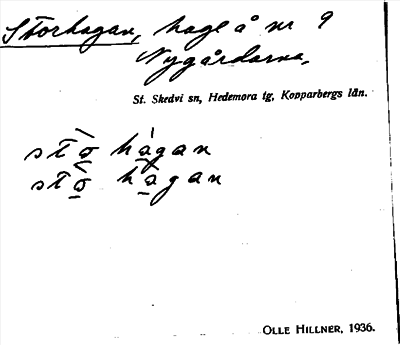 Storhagan, hage å nr 9
Nygårdarna.
St. Skedvi sn, Hedemora tg, Kopparbergs län.
sto hagan
stå hagan
OLLE HILLNER, 1936.